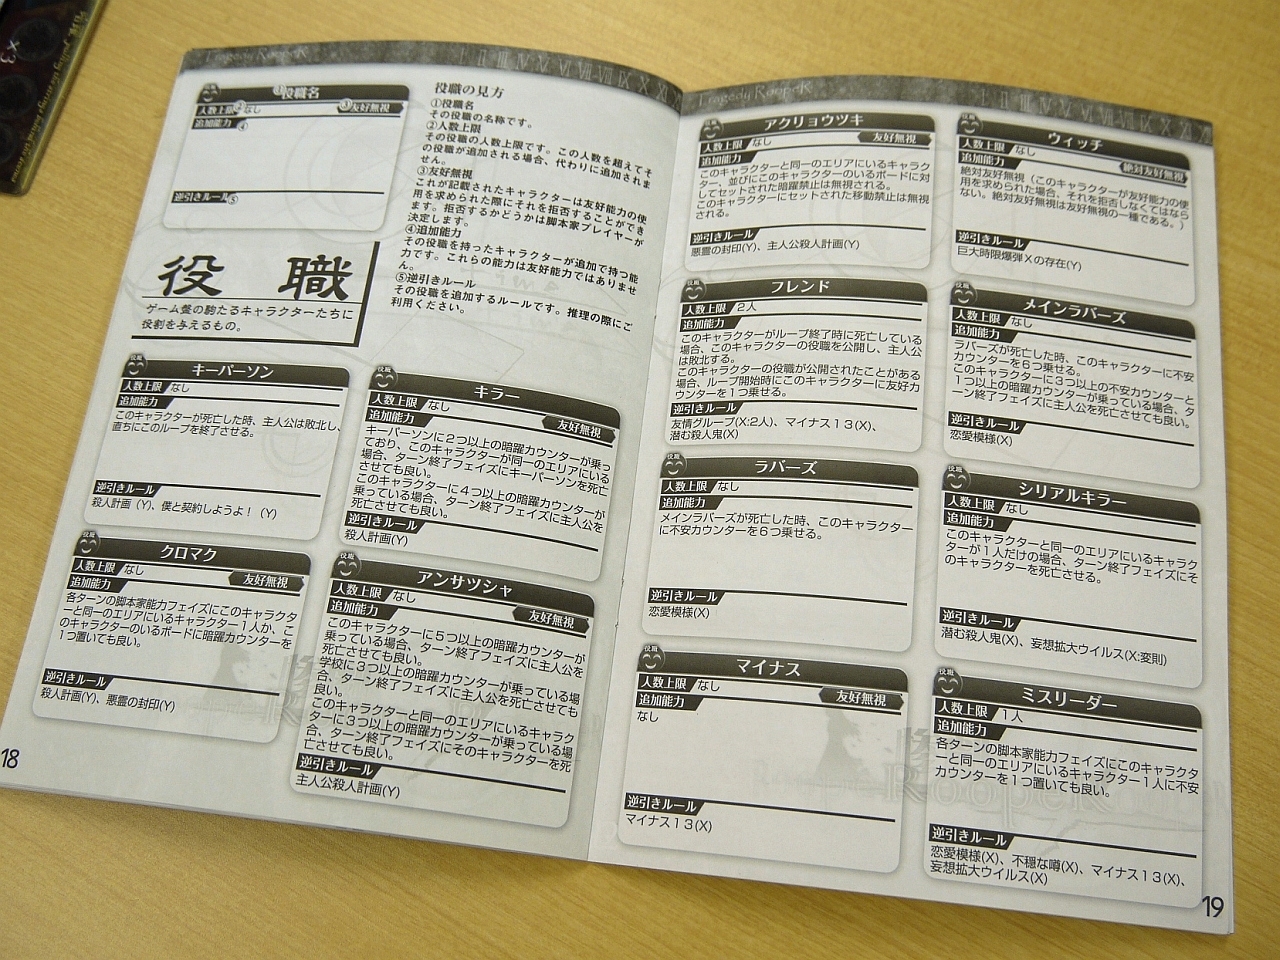 Tragedy RoopeR
①役職名
人数上限②なし
③友好無視
追加能力④
逆引きルール⑤
役職の見方
①役職名
その役職の名称です。
②人数上限
その役職の人数上限です。この人数を超えてそ
の役職が追加される場合、代わりに追加されま
せん。
③友好無視
これが記載されたキャラクターは友好能力の使
用を求められた際にそれを拒否することができ
ます。拒否するかどうかは脚本家プレイヤーが
決定します。
④追加能力
その役職を持ったキャラクターが追加で持つ能
力です。これらの能力は友好能力ではありませ
ん。
⑤逆引きルール
その役職を追加するルールです。推理の際にご
利用ください。
役 職
ゲーム盤の駒たるキャラクターたちに
役割を与えるもの。
役職
キーパーソン
人数上限 なし
追加能力
このキャラクターが死亡した時、主人公は敗北し、
直ちにこのループを終了させる。
逆引きルール
殺人計画(Y)、僕と契約しようよ!(Y)
役職
キラー
人数上限 なし
友好無視
追加能力
キーパーソンに2つ以上の暗躍カウンターが乗っ
ており、このキャラクターが同一のエリアにいる
場合、ターン終了フェイズにキーパーソンを死亡
させても良い。
このキャラクターに4つ以上の暗躍カウンターが
乗っている場合、ターン終了フェイズに主人公を
死亡させても良い。
逆引きルール
殺人計画(Y)
役職
クロマク
人数上限 なし
友好無視
追加能力
各ターンの脚本家能力フェイズにこのキャラクタ
ーと同一のエリアにいるキャラクター1人か、こ
のキャラクターのいるボードに暗躍カウンターを
1つ置いても良い。
逆引きルール
殺人計画(Y)、悪霊の封印(Y)
役職
アンサツシャ
人数上限 なし
友好無視
追加能力
このキャラクターに5つ以上の暗躍カウンターが
乗っている場合、ターン終了フェイズに主人公を
死亡させても良い。
学校に3つ以上の暗躍カウンターが乗っている場
合、ターン終了フェイズに主人公を死亡させても
良い。
このキャラクターと同一のエリアにいるキャラク
ターに3つ以上の暗躍カウンターが乗っている場
合、ターン終了フェイズにそのキャラクターを死
亡させても良い。
逆引きルール
主人公殺人計画(Y)
18
Tragedy RoopeR
役職
アクリョウツキ
人数上限 なし
友好無視
追加能力
このキャラクターと同一のエリアにいるキャラク
ター、並びにこのキャラクターのいるボードに対
してセットされた暗躍禁止は無視される。
このキャラクターにセットされた移動禁止は無視
される。
逆引きルール
悪霊の封印(Y)、主人公殺人計画(Y)
役職
ウィッチ
人数上限 なし
絶対友好無視
追加能力
絶対友好無視(このキャラクターが友好能力の使
用を求められた場合、それを拒否しなくてはなら
ない。絶対友好無視は友好無視の一種である。)
逆引きルール
巨大時限爆弾Xの存在(Y)
役職
フレンド
人数上限 2人
追加能力
このキャラクターがループ終了時に死亡している
場合、このキャラクターの役職を公開し、主人公
は敗北する。
このキャラクターの役職が公開されたことがある
場合、ループ開始時にこのキャラクターに友好カ
ウンターを1つ乗せる。
逆引きルール
友情グループ(X:2人)、マイナス13(X)、
潜む殺人鬼(X)
役職
メインラバーズ
人数上限 なし
追加能力
ラバーズが死亡した時、このキャラクターに不安
カウンターを6つ乗せる。
このキャラクターに3つ以上の不安カウンターと
1つ以上の暗躍カウンターが乗っている場合、タ
ーン終了フェイズに主人公を死亡させても良い。
逆引きルール
恋愛模様(X)
役職
ラバーズ
人数上限 なし
追加能力
メインラバーズが死亡した時、このキャラクター
に不安カウンターを6つ乗せる。
逆引きルール
恋愛模様(X)
役職
シリアルキラー
人数上限 なし
追加能力
このキャラクターと同一のエリアにいるキャラク
ターが1人だけの場合、ターン終了フェイズにそ
のキャラクターを死亡させる。
逆引きルール
潜む殺人鬼(X)、妄想拡大ウイルス(X:変則)
役職
マイナス
人数上限 なし
友好無視
追加能力
なし
逆引きルール
マイナス13(X)
役職
ミスリーダー
人数上限 1人
追加能力
各ターンの脚本家能力フェイズにこのキャラクタ
ーと同一のエリアにいるキャラクター1人に不安
カウンターを1つ置いても良い。
逆引きルール
恋愛模様(X)、不穏な噂(X)、マイナス13(X)、
妄想拡大ウイルス(X)
19
×3